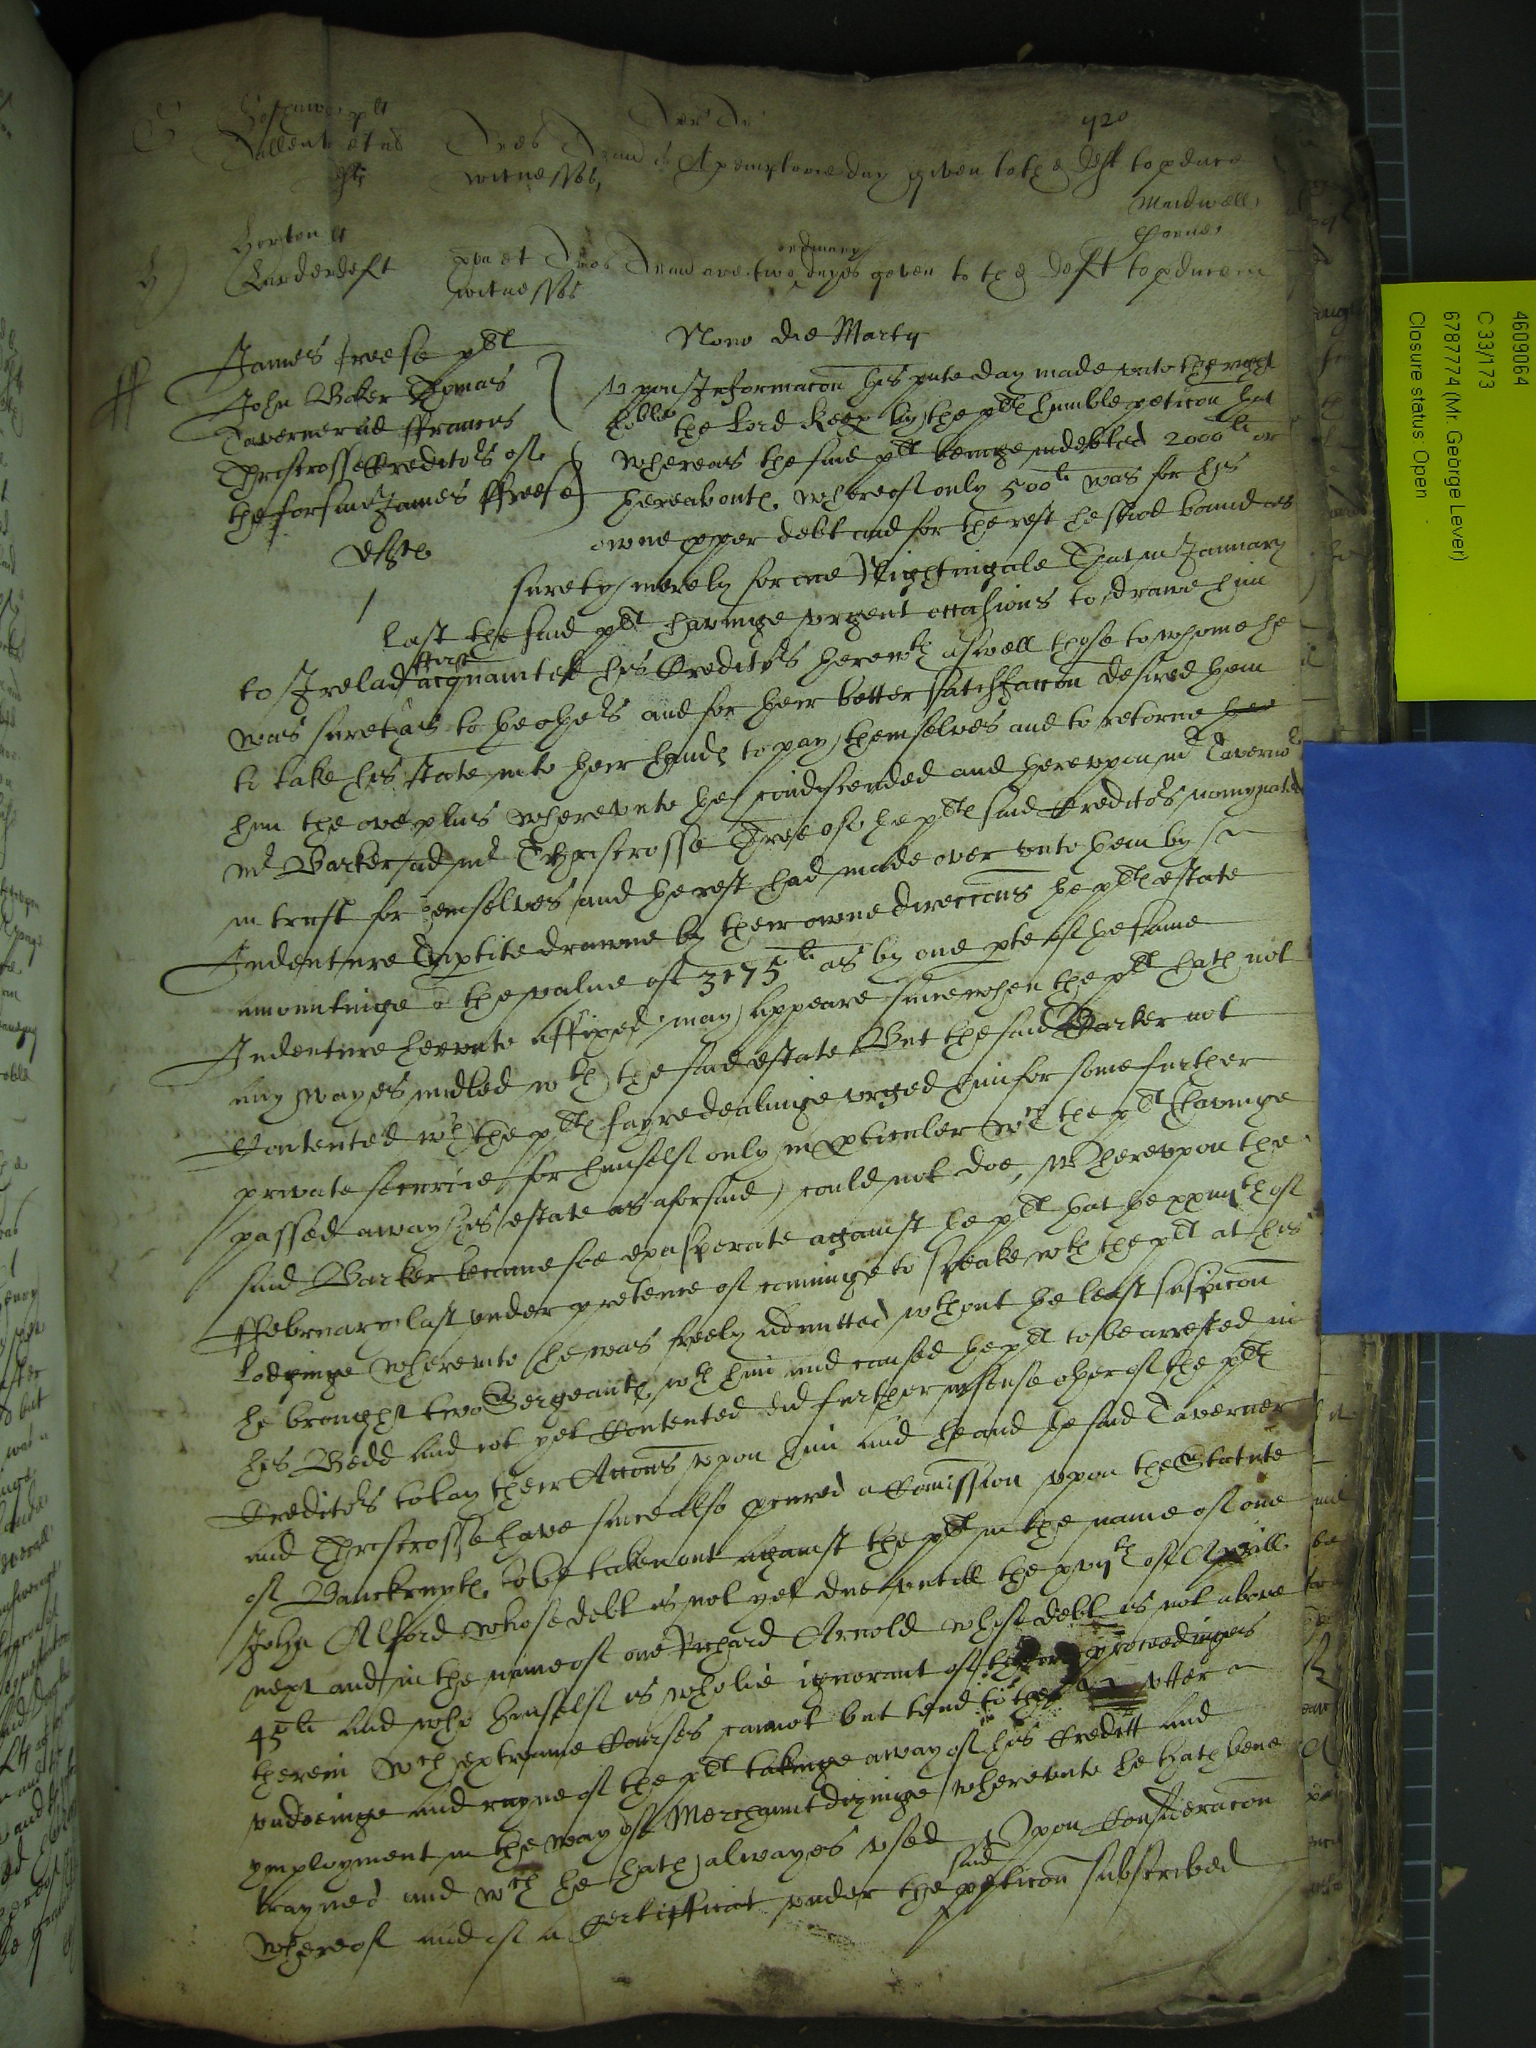 420
plt
Tallent et al
deft
dies dand is A peremptorie day given to the deft to pduce
witnesses,
Maidwell
Horton plt
deft
dies dand are two ordinary dayes geven to the deft to pduce
witnesses
Nono die Martij
James ffreese plt
John Barker Thomas
Taverner and ffrancis
Thriscrosse Creditors of
the forsaid James ffreese
defts
Upon Informacon this pnte day made unto the right
hoble the Lord Keep by the plts humble peticon that
whereas the said plt beinge indebted 2000li or
thereaboute, whereof only 500li was for his
owne pper debt and for the rest he stood bound as
surety merely for one Nightingale That in January
last the said plt havinge urgent occasions to drawe him
to Ireland first acquainted his Creditors therewth aswell those to whome he
was surety as to the others and for their better satisfaccon desired them
to take his state into their hands to pay themselves and to retorne
him the overplus whereunto they condiscended and thereupon mr Taverner
mr Barker and mr Thriscrosse Three of the plts said Creditors nomynated
in trust for themselves and the rest had made over unto them by
Indenture Triptite drawne by their owne direccons the plts estate
amountinge to the value of 3175li as by one pte of the same
Indenture hereunto affixed may appeare since when the plt hath not
any wayes medled wth the said estate But the said Barker not
Contented wth the plts fayre dealinge urged him for some further
private securitie for himself only in pticuler wch the plt havinge
passed away his estate as aforsaid could not doe, Whereupon the
said Barker became soe exasperate against the plt that the of
ffebruary last under pretence of cominge to speake wth the plt at his
Lodginge whereunto he was freely admitted wthout the least suspicon
he brought two Sergeants wth him and caused the plt to be arrested in
his Bedd And not yet Contented did further incense other of the plts
Creditors to lay their Accons upon him And he and the said Taverner
and Thriscrosse have since also pcured a Comission upon the Statute
of Banckrupts to be taken out against the plt in the name of one
John Alford whose debt is not yet due untill the of Aprill
next and in the name of one Richard Arnold whose debt is not above
45li And who himself is wholie ignorant of their proceedinges
therein Wch extreame Courses cannot but tend to the utter
undoeinge and ruyne of the plt takinge away of his Creditt and
ymployment in the way of Merchaunt dizinge whereunto he hath bene
trayned and wch he hath alwayes used Upon Consideracon
whereof and of a Certifficat under the said peticon subscribed
4609064
C 33/173
6787774 (Mr. George Lever)
Closure status: Open